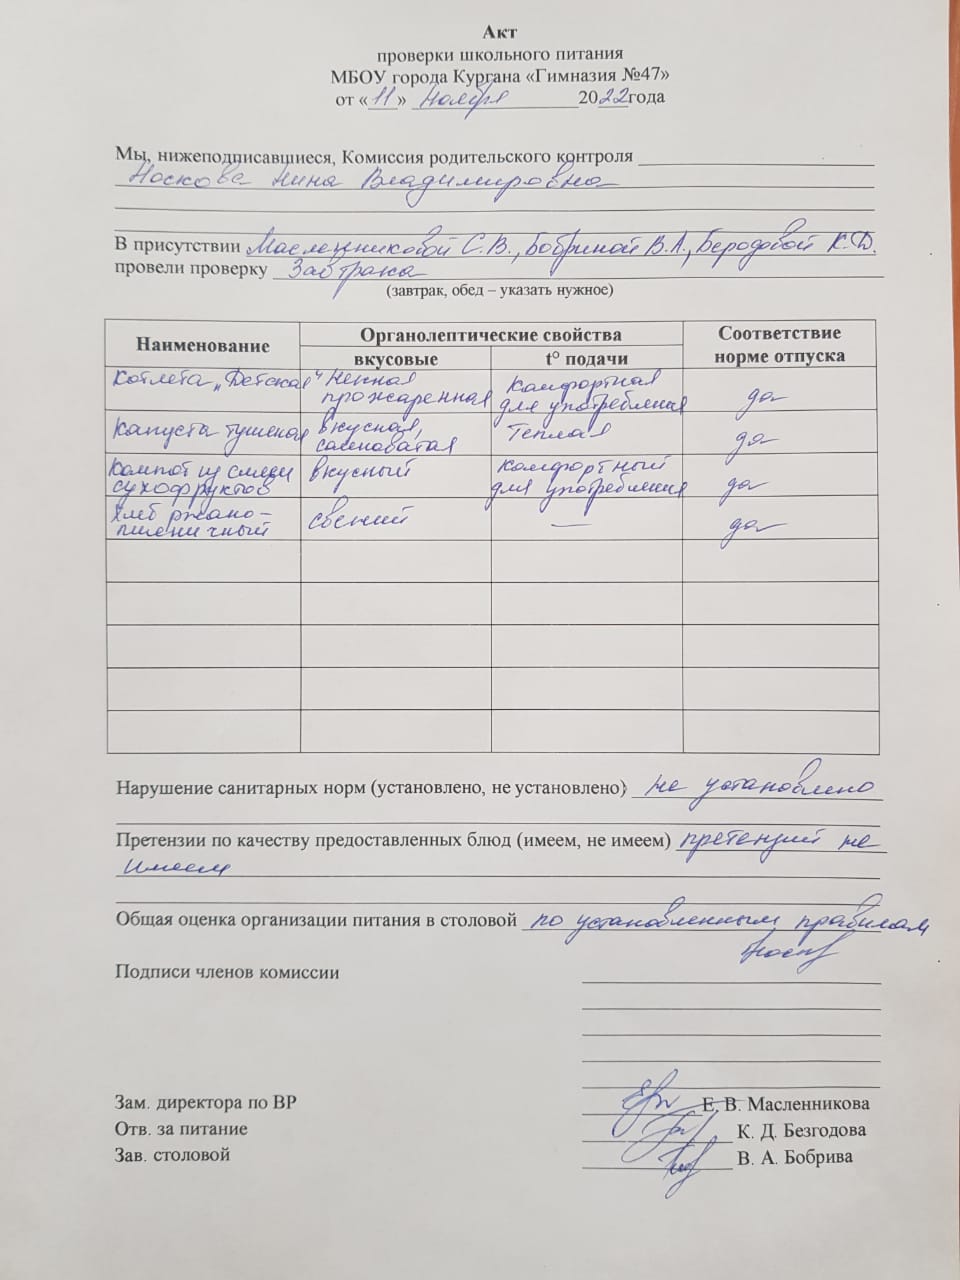 Акт
проверки школьного питания
МБОУ города Кургана «Гимназия №47»
от «11» Ноября 2022года
Мы, нижеподписавшиеся, Комиссия родительского контроля
Носкова Нина Владимировна
В присутствии Масленниковой С.В., Бобриной В.А., Бегодовой К.Д.
провели проверку Завтрака
(завтрак, обед – указать нужное)
Наименование Органолептические свойства Соответствие норме отпуска
вкусовые t° подачи
Котлета „Детская“ Нежная прожаренная Комфортная для употребления да
Капуста тушеная вкусная, солоноватая Теплая да
Компот из смеси сухофруктов вкусный комфортный для употребления да
Хлеб ржано-пшеничный свежий — да
Нарушение санитарных норм (установлено, не установлено) не установлено
Претензии по качеству предоставленных блюд (имеем, не имеем) претензий не
имеем
Общая оценка организации питания в столовой по установленным правилам
Подписи членов комиссии
Зам. директора по ВР Е. В. Масленникова
Отв. за питание К. Д. Безгодова
Зав. столовой В. А. Бобрива